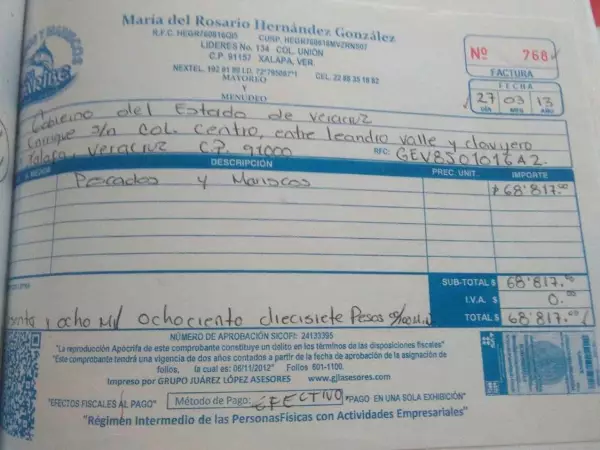 María del Rosario Hernández González
R.F.C. HEGR760816QI5 CURP. HEGR760816MVZRNS07
LIDERES No. 134 COL. UNIÓN
C.P. 91157 XALAPA, VER.
CEL. 22 88 35 18 82
MAYOREO
Y
MENUDEO
Nº 768
FACTURA
FECHA
27 03 13
DÍA MES AÑO
CARIBE
Gobierno del Estado de Veracruz
Enrique s/n Col. Centro, entre leandro valle y clavijero
Xalapa, Veracruz C.P. 91000 RFC: GEV8501016A2.
DESCRIPCIÓN PREC. UNIT. IMPORTE
Pescados y Mariscos $68'817.00
SUB-TOTAL $ 68'817.00
I.V.A. $ 0.00
ocho Mil ochociento diecisiete Pesos TOTAL $ 68'817.00
NÚMERO DE APROBACIÓN SICOFI: 24133395
"La reproducción Apócrifa de este comprobante constituye un delito en los términos de las disposiciones fiscales"
"Este comprobante tendrá una vigencia de dos años contados a partir de la fecha de aprobación de la asignación de
folios, la cual es: 06/11/2012" Folios 601-1100.
Impreso por GRUPO JUÁREZ LÓPEZ ASESORES www.gjlasesores.com
"EFECTOS FISCALES AL PAGO" Método de Pago: EFECTIVO "PAGO EN UNA SOLA EXHIBICIÓN"
"Régimen Intermedio de las PersonasFísicas con Actividades Empresariales"